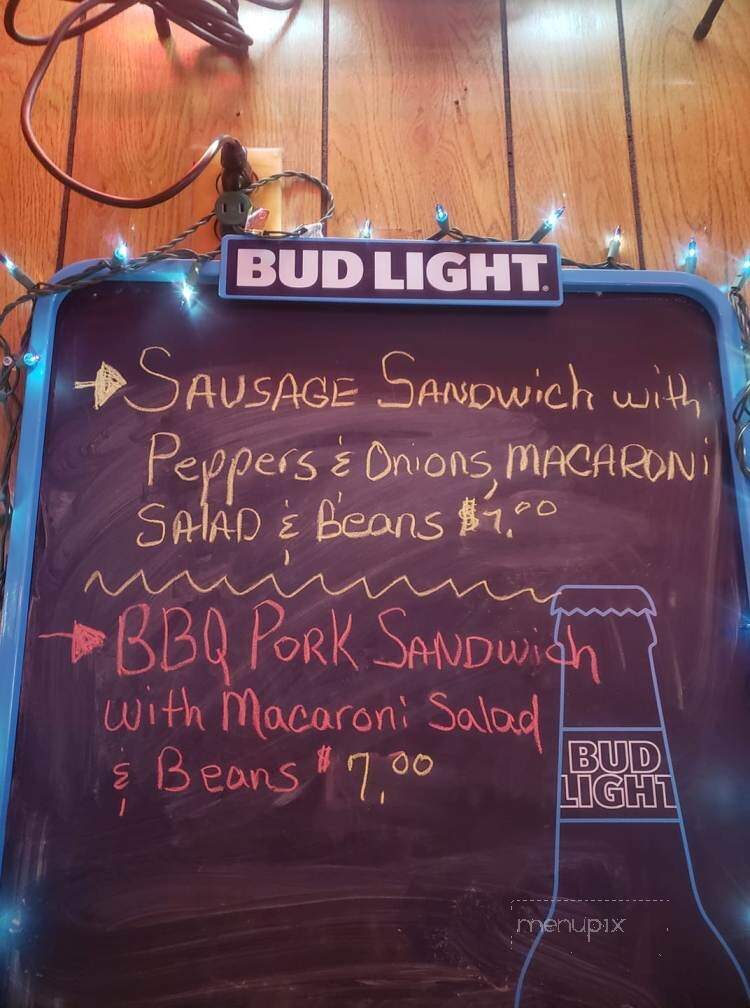 BUD LIGHT
SAUSAGE SANDWich with
Peppers & Onions, MACARONi
SALAD & Beans $7.00
BBQ PORK SANDWich
with Macaroni Salad
& Beans $7.00
BUD
LIGHT
menupix